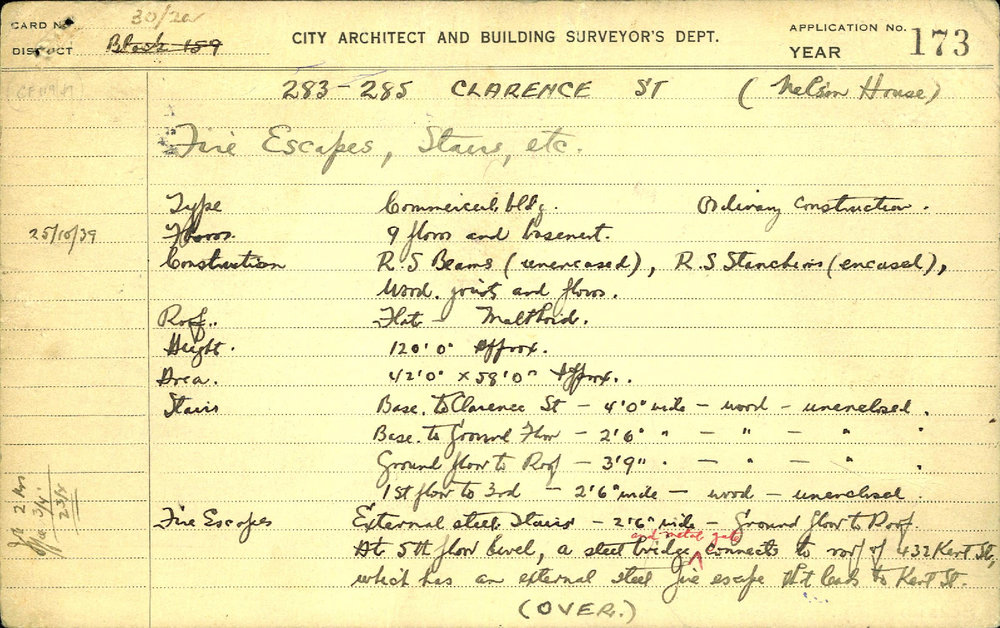 30/2a
CARD No
DISTRICT Block 159
CITY ARCHITECT AND BUILDING SURVEYOR'S DEPT.
APPLICATION No.
YEAR
173
283-285 CLARENCE ST (Nelson House)
Fire Escapes, Stairs, etc.
Type Commercial bldg. Ordinary Construction.
25/10/39 Floors. 9 floors and basement.
Construction R.S Beams (unencased), R.S Stanchions (encased),
Wood joists and floors.
Roof.. Flat - Malthoid.
Height. 120'0" Approx.
Area. 42'0" x 58'0" Approx..
Stairs Base. to Clarence St - 4'0" wide - wood - unenclosed.
Base. to Ground Floor - 2'6" " - " - " .
Ground floor to Roof - 3'9" . - " - " .
1st floor to 3rd - 2'6" wide - wood - unenclosed.
Fire Escapes External steel Stairs - 2'6" wide - Ground floor to Roof.
and metal gate
At 5th floor level, a steel bridge connects to roof of 432 Kent St,
which has an external steel fire escape tht leads to Kent St.
(OVER.)
2 Hrs
3/4
23/2